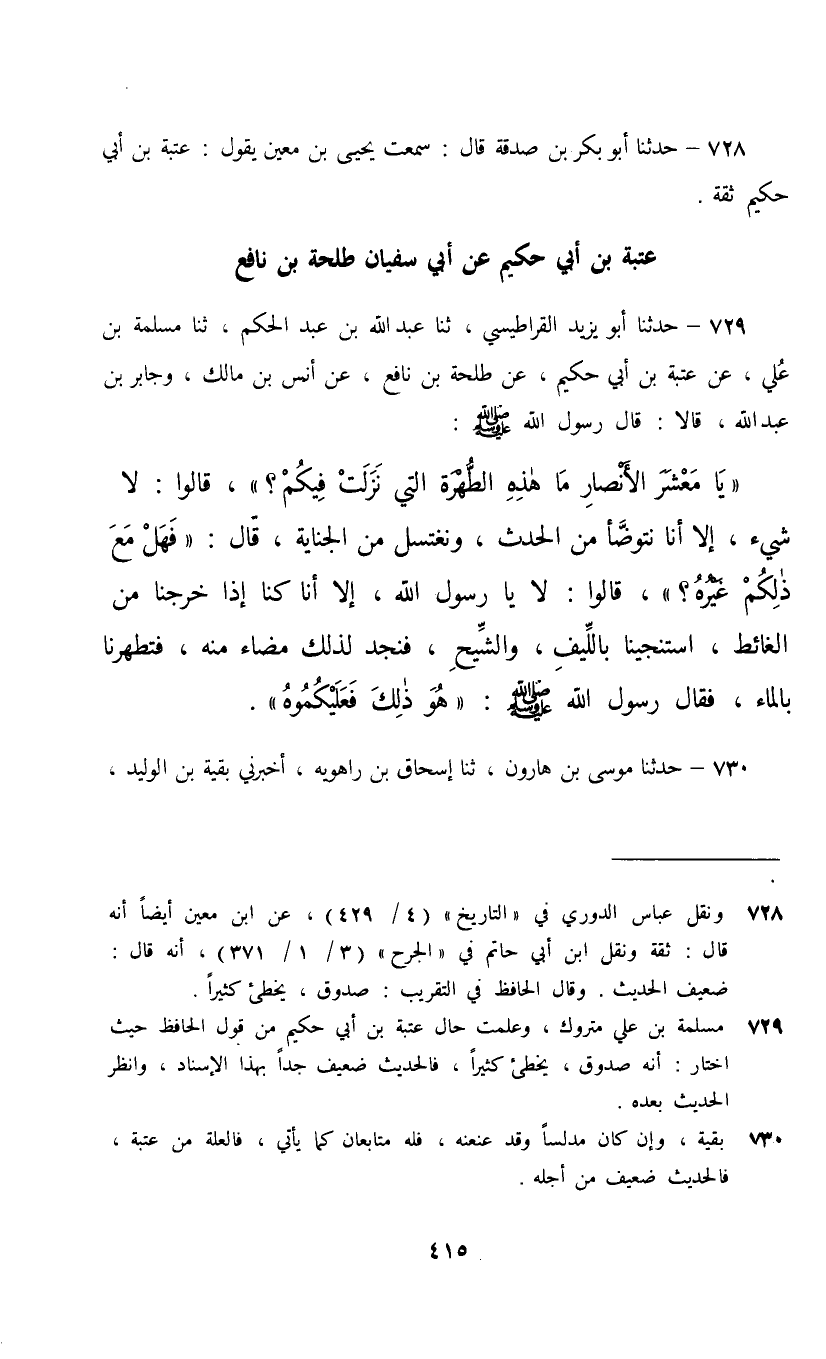 ٧٢٨ – حدثنا أبو بكر بن صدقة قال : سمعت يحيى بن معين يقول : عتبة بن أبي
حكيم ثقة .
عتبة بن أبي حكيم عن أبي سفيان طلحة بن نافع
٧٢٩ – حدثنا أبو يزيد القراطيسي ، ثنا عبد الله بن عبد الحكم ، ثنا مسلمة بن
عُلي ، عن عتبة بن أبي حكيم ، عن طلحة بن نافع ، عن أنس بن مالك ، وجابر بن
عبد الله ، قالا : قال رسول الله ﷺ :
« يَا مَعْشَرَ الأَنْصارِ مَا هٰذِهِ الطُّهْرَة التي نَزَلَتْ فِيكُمْ ؟ » ، قالوا : لا
شيء ، إلا أنا نتوضَّأ من الحدث ، ونغتسل من الجناية ، قّال : « فَهَلْ مَعَ
ذٰلِكُمْ غَيْرُهُ ؟ » ، قالوا : لا يا رسول الله ، إلا أنا كنا إذا خرجنا من
الغائط ، استنجينا باللِّيفِ ، والشِّيحِ ، فنجد لذلك مضاء منه ، فتطهرنا
بالماء ، فقال رسول الله ﷺ : « هُوَ ذٰلِكَ فَعَلَيْكُمُوهُ » .
٧٣٠ – حدثنا موسى بن هارون ، ثنا إسحاق بن راهويه ، أخبرني بقية بن الوليد ،
٧٢٨ ونقل عباس الدوري في « التاريخ » ( ٤ / ٤٢٩ ) ، عن ابن معين أيضاً أنه
قال : ثقة ونقل ابن أبي حاتم في « الجرح » ( ٣ / ١ / ٣٧١ ) ، أنه قال :
ضعيف الحديث . وقال الحافظ في التقريب : صدوق ، يخطئ كثيراً .
٧٢٩ مسلمة بن علي متروك ، وعلمت حال عتبة بن أبي حكيم من قول الحافظ حيث
اختار : أنه صدوق ، يخطئ كثيراً ، فالحديث ضعيف جداً بهذا الإسناد ، وانظر
الحديث بعده .
٧٣٠ بقية ، وإن كان مدلساً وقد عنعنه ، فله متابعان كما يأتي ، فالعلة من عتبة ،
فالحديث ضعيف من أجله .
٤١٥